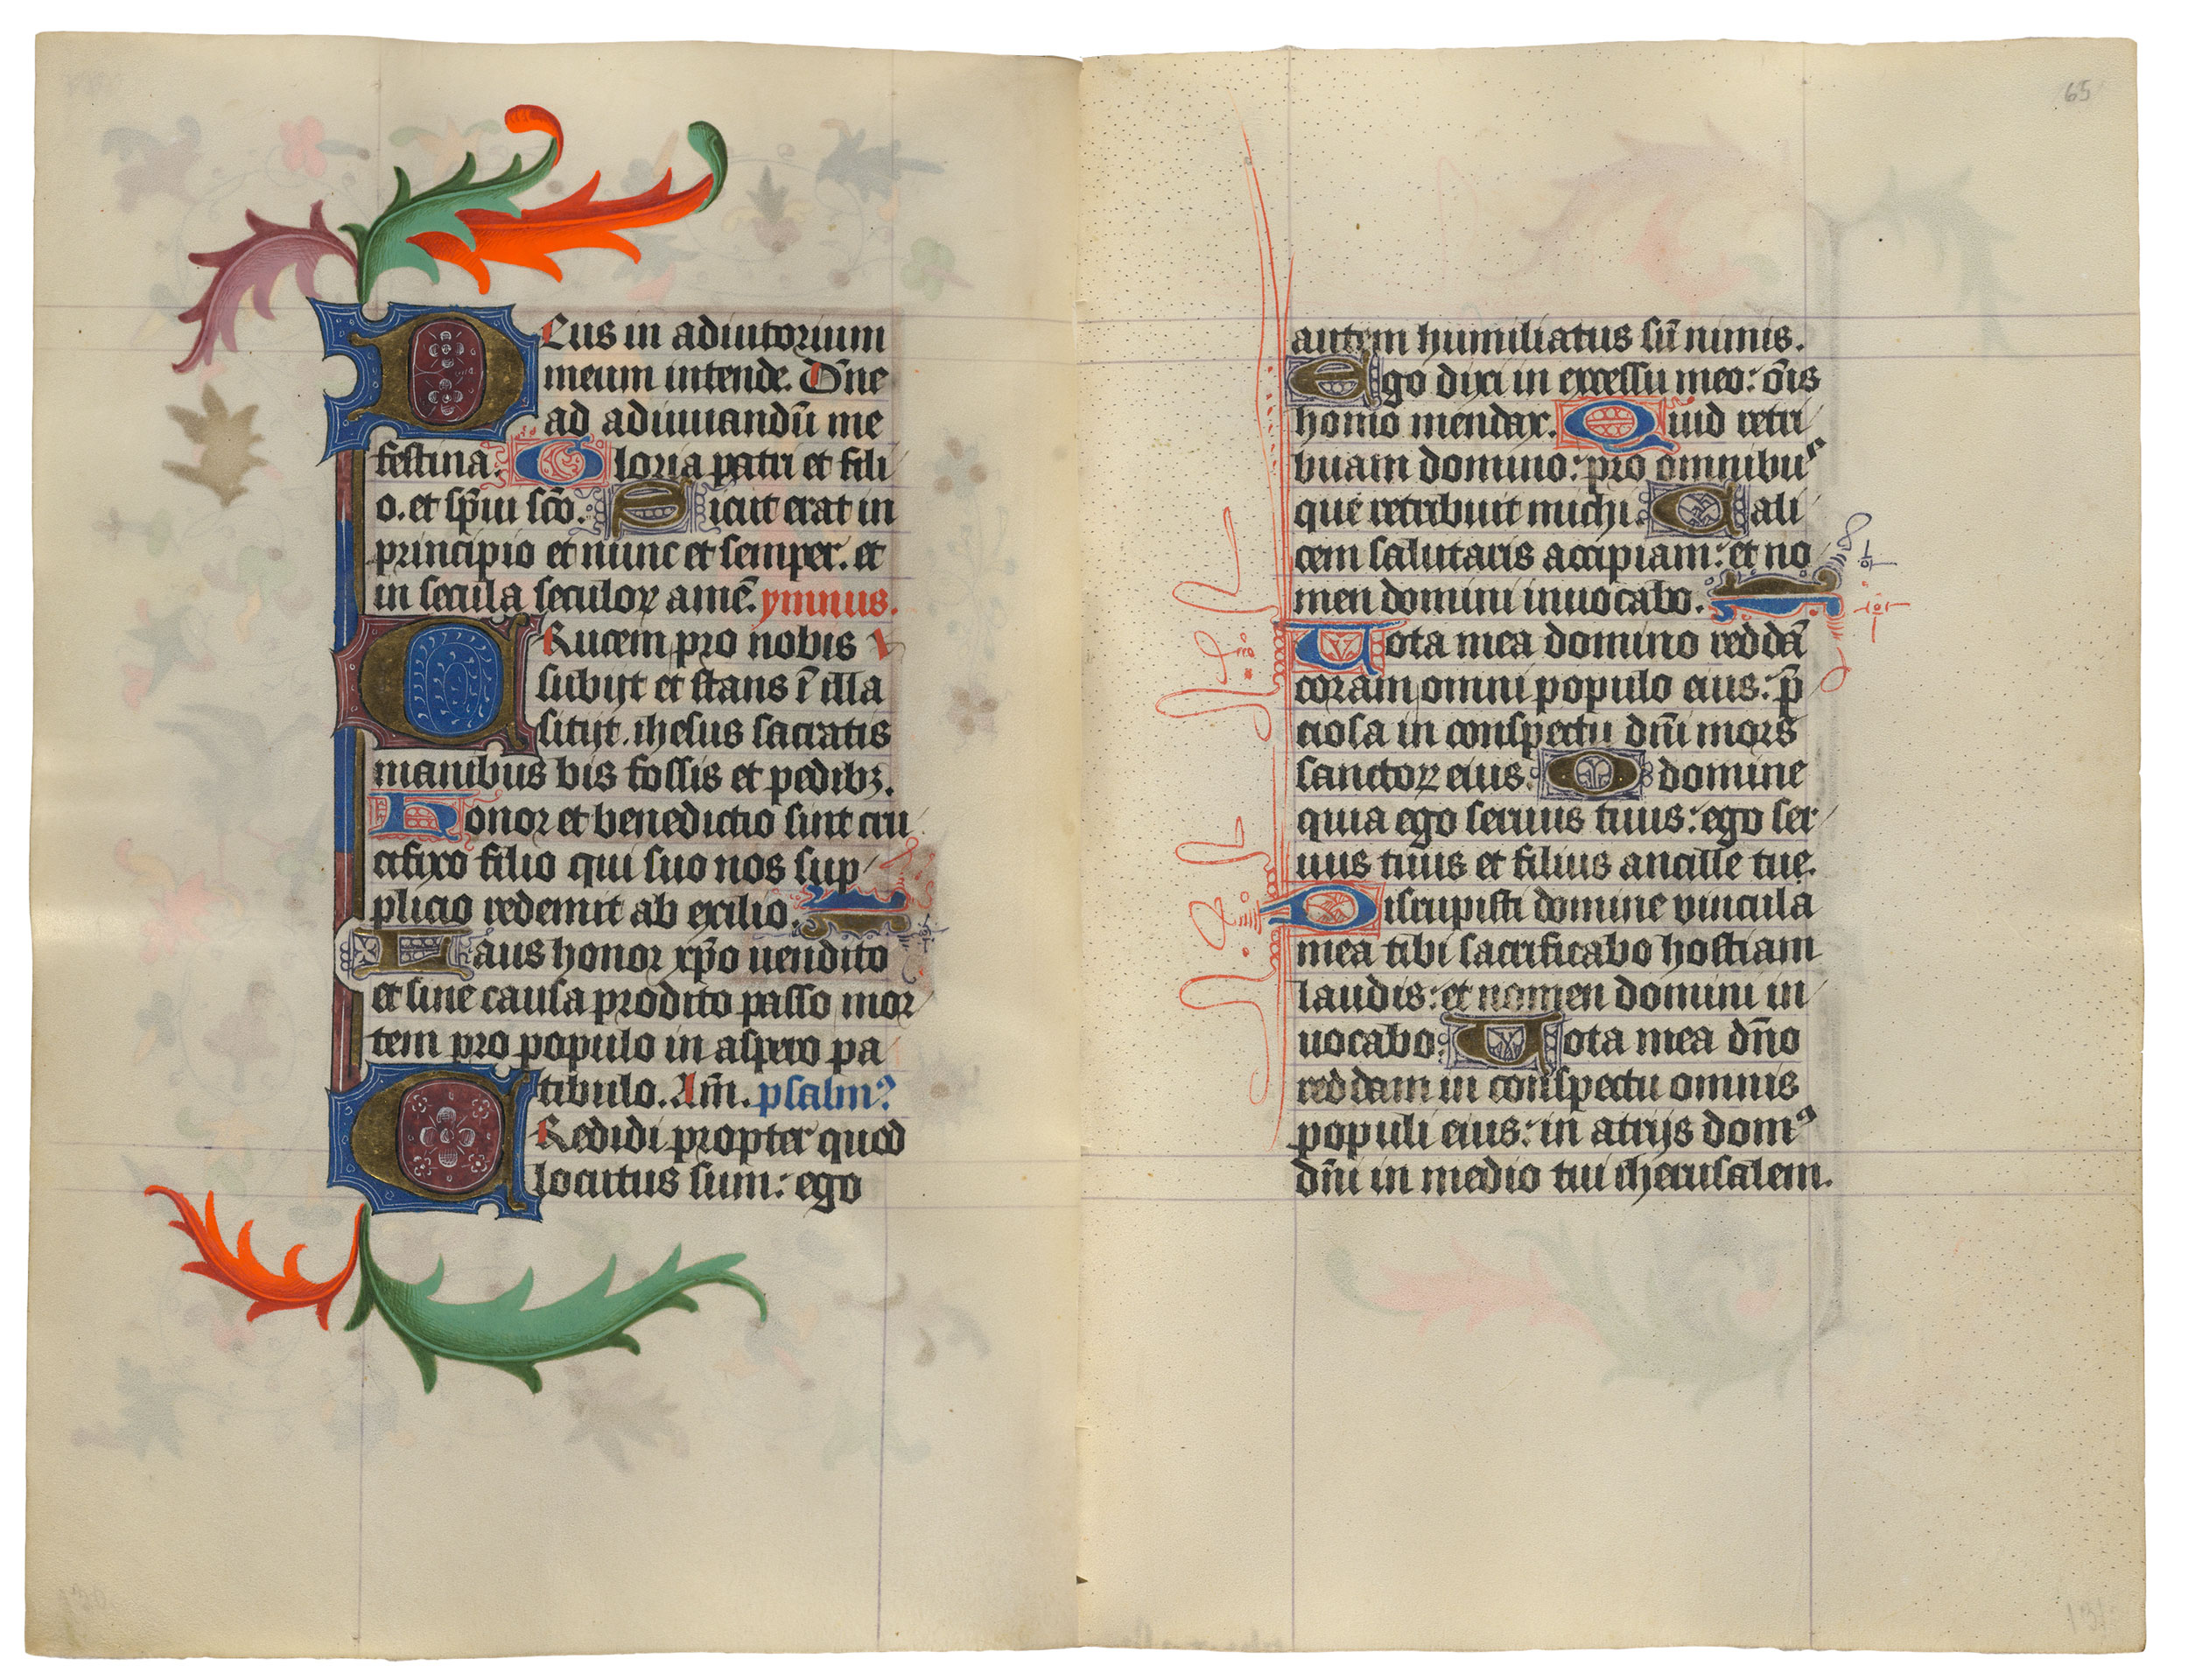 DEus in adiutorium
meum intende. Dn̄e
ad adiuuandū me
festina. Gloria patri et fili
o. et sp̄iu sc̄o. Sicut erat in
principio et nunc et semper. et
in secula seculoꝝ amē. ymnus.
CRucem pro nobis
subijt et stans ī illa
sitijt. ihesus sacratis
manibus bis fossis et pedibꝫ.
Honor et benedictio sint cru
cifixo filio qui suo nos sup
plicio redemit ab exilio.
Laus honor xp̄o uendito
et sine causa prodito passo mor
tem pro populo in aspero pa
tibulo. Am̄. psalmꝰ
CRedidi propter quod
locutus sum: ego
65
autem humiliatus sū nimis.
Ego dixi in excessu meo: ōis
homo mendax. Quid retri
buam domino: pro omnibus
que retribuit michi. Cali
cem salutaris accipiam: et no
men domini inuocabo.
Vota mea domino reddā
coram omni populo eius: p̄
ciosa in conspectu dn̄i mors
sanctoꝝ eius. O domine
quia ego seruus tuus: ego ser
uus tuus et filius ancille tue.
Dirupisti domine vincula
mea tibi sacrificabo hostiam
laudis: et nomen domini in
uocabo. Vota mea dn̄o
reddam in conspectu omnis
populi eius: in atrijs domꝰ
dn̄i in medio tui iherusalem.